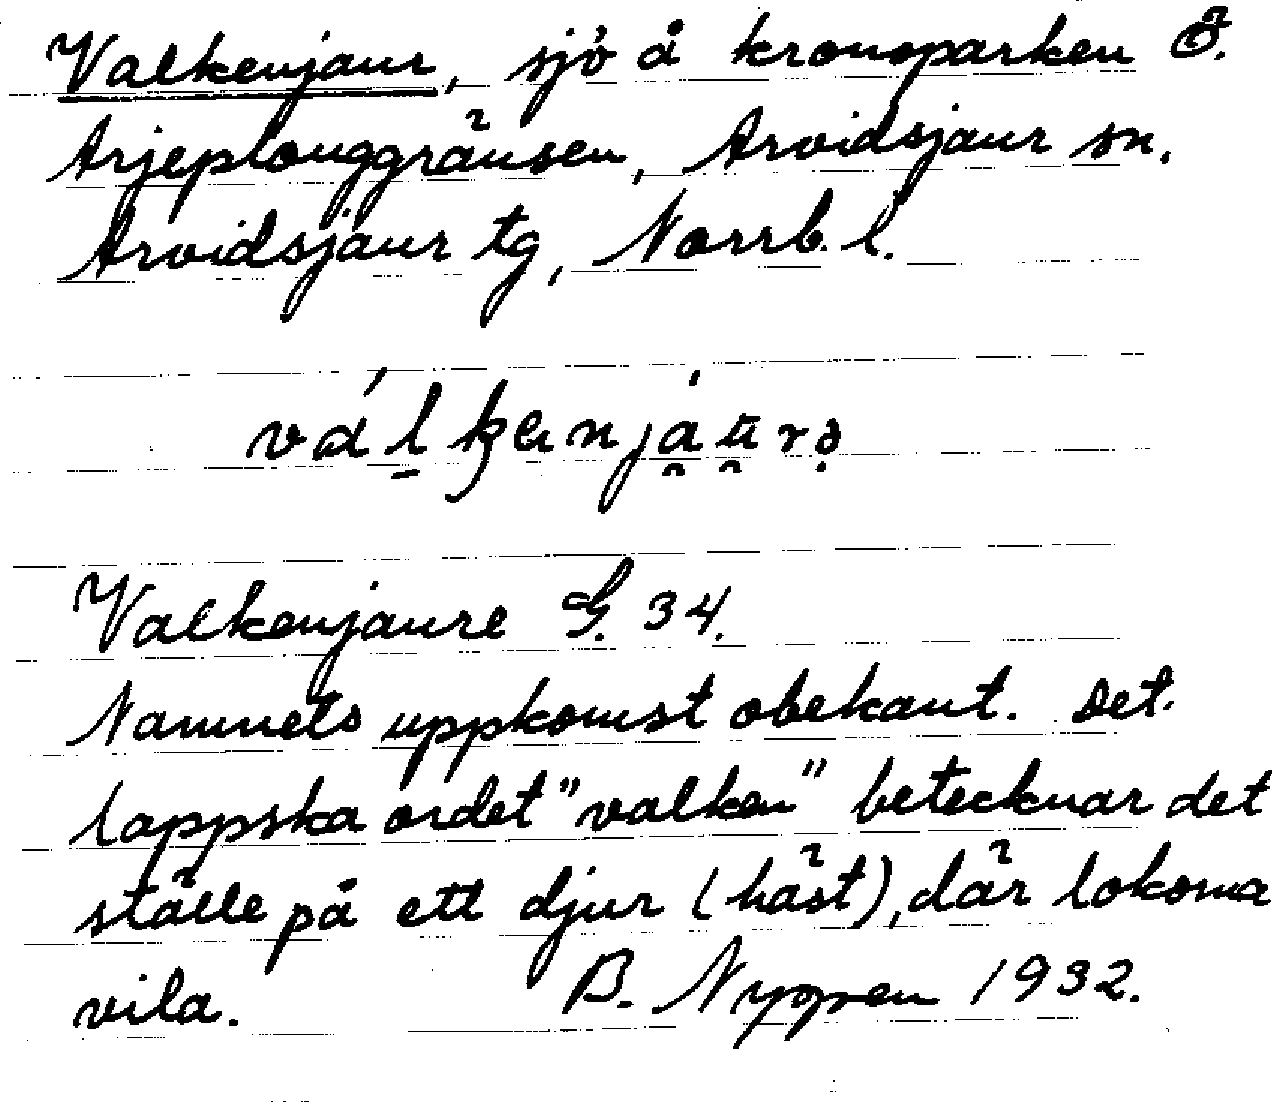 Valkenjaur, sjö å kronoparken Ö.
Arjeplouggränsen, Arvidsjaur sn.
Arvidsjaur tg, Norrb. l.
Valkenjaure G. 34.
Namnets uppkomst obekant. Det.
lappska ordet "valken" betecknar det
ställe på ett djur (häst), där lokorna
vila. B. Nygren 1932.